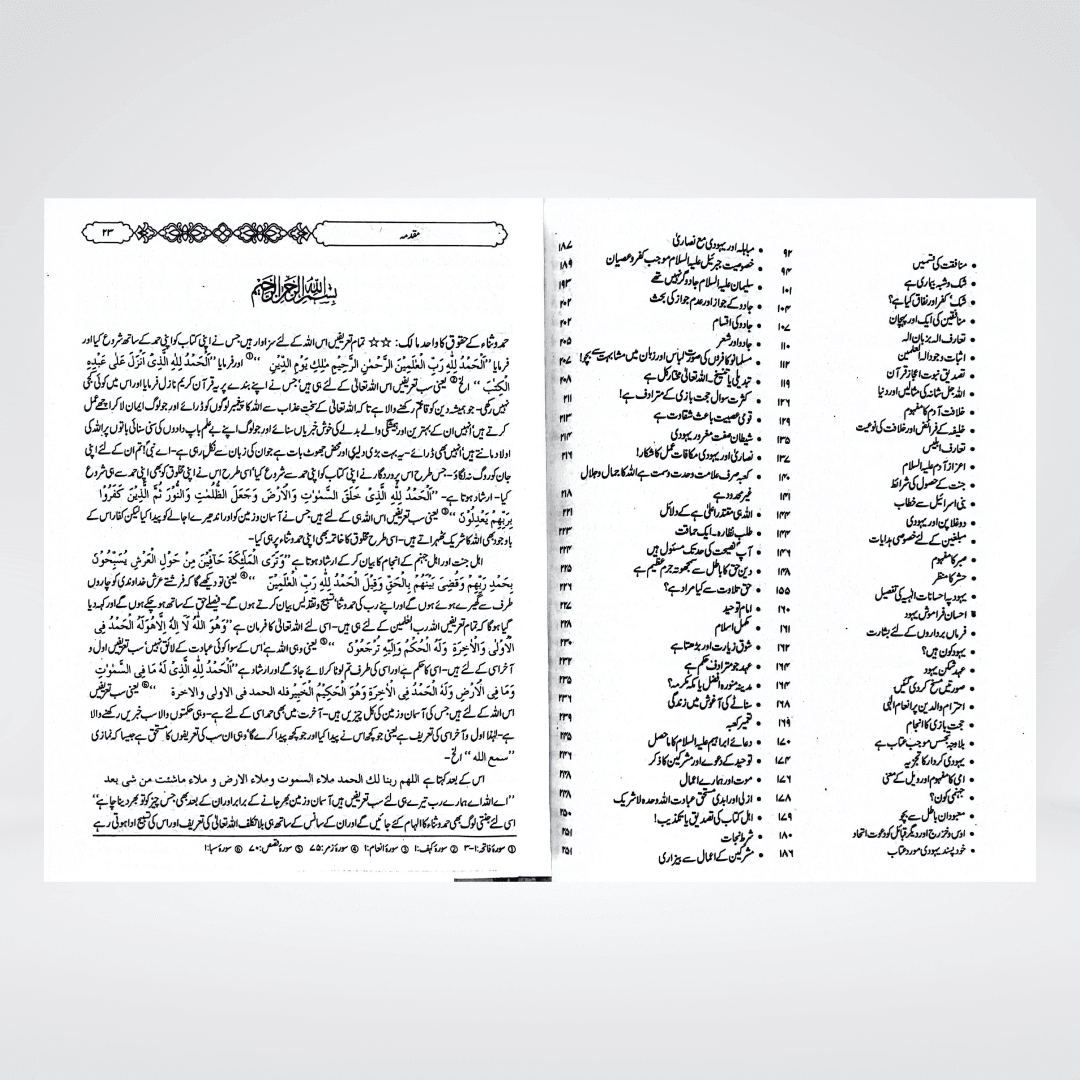 • منافقت کی قسمیں ۹۲
• شک و شبہ بیماری ہے ۹۴
• شک' کفر اور نفاق کیا ہے؟ ۱۰۱
• منافقین کی ایک اور پہچان ۱۰۴
• تعارف الٰہ بزبان الٰہ ۱۰۷
• اثبات وجود الٰہ العلمین ۱۱۰
• تصدیق نبوت اعجاز قرآن ۱۱۲
• اللہ جل شانہ کی مثالیں اور دنیا ۱۱۹
• خلافت آدم کا مفہوم ۱۲۶
• خلیفہ کے فرائض اور خلافت کی نوعیت ۱۲۹
• تعارف ابلیس ۱۳۵
• اعزاز آدم علیہ السلام ۱۳۷
• جنت کے حصول کی شرائط ۱۴۰
• بنی اسرائیل سے خطاب ۱۴۱
• دوغلا پن اور یہودی ۱۴۳
• مبلغین کے لئے خصوصی ہدایات ۱۴۴
• صبر کا مفہوم ۱۴۶
• حشر کا منظر ۱۴۸
• یہود پہ احسانات الٰہیہ کی تفصیل ۱۵۵
• احسان فراموش یہود ۱۶۰
• فرماں برداروں کے لئے بشارت ۱۶۱
• یہود کون ہیں؟ ۱۶۲
• عہد شکن یہود ۱۶۴
• صورتیں مسخ کر دی گئیں ۱۶۴
• احترام والدین پر انعام الٰہی ۱۶۸
• حجت بازی کا انجام ۱۶۹
• بلاوجہ تجسس موجب عتاب ہے ۱۷۰
• یہودی کردار کا تجزیہ ۱۷۴
• امی کا مفہوم اور ویل کے معنی ۱۷۶
• جہنمی کون؟ ۱۷۸
• معبودان باطل سے بچو ۱۷۹
• اوس و خزرج اور دیگر قبائل کو دعوت اتحاد ۱۸۰
• خود پسند یہودی مورد عتاب ۱۸۶
• مباہلہ اور یہودی مع نصاریٰ ۱۸۷
• خصومیت جبرئیل علیہ السلام موجب کفر و عصیان ۱۸۹
• سلیمان علیہ السلام جادوگر نہیں تھے ۱۹۳
• جادو کے جواز اور عدم جواز کی بحث ۲۰۲
• جادو کی اقسام ۲۰۲
• جادو اور شعر ۲۰۵
• مسلمانو کافروں کی صورت لباس اور زبان میں مشابہت سے بچو! ۲۰۷
• تبدیلی یا تنسیخ۔ اللہ تعالیٰ مختار کل ہے ۲۰۸
• کثرت سوال حجت بازی کے مترادف ہے! ۲۱۱
• قومی عصبیت باعث شقاوت ہے ۲۱۳
• شیطان صفت مغرور یہودی ۲۱۴
• نصاریٰ اور یہودی مکافات عمل کا شکار! ۲۱۶
• کعبہ صرف علامت وحدت و سمت ہے اللہ کا جمال و جلال
غیر محدود ہے ۲۱۸
• اللہ ہی مقتدر اعلیٰ ہے کے دلائل ۲۲۱
• طلب نظارہ۔ ایک حماقت ۲۲۳
• آپ نصیحت کی حد تک مسئول ہیں ۲۲۴
• دین حق کا باطل سے سمجھوتہ جرم عظیم ہے ۲۲۵
• حق تلاوت سے کیا مراد ہے؟ ۲۲۶
• امام توحید ۲۲۷
• مکمل اسلام ۲۲۸
• شوق زیارت اور بڑھتا ہے ۲۳۰
• عہد جو مترادف حکم ہے ۲۳۲
• مدینہ منورہ افضل یا مکہ مکرمہ؟ ۲۳۵
• سناٹے کی آغوش میں زندگی ۲۳۶
• تعمیر کعبہ ۲۳۹
• دعائے ابراہیم علیہ السلام کا ماحصل
• توحید کے دعوے اور مشرکین کا ذکر ۲۴۶
• موت اور ہمارے اعمال ۲۴۸
• ازلی اور ابدی مستحق عبادت اللہ وحدہ لا شریک ۲۴۸
• اہل کتاب کی تصدیق یا تکذیب! ۲۵۰
• شرط نجات ۲۵۱
• مشرکین کے اعمال سے بیزاری ۲۵۱
مقدمہ ۲۳
بسم اللہ الرحمن الرحیم
حمد و ثناء کے حقوق کا واحد مالک: ☆☆ تمام تعریفیں اس اللہ کے لئے سزاوار ہیں جس نے اپنی کتاب کو اپنی حمد کے ساتھ شروع کیا اور
فرمایا ''اَلْحَمْدُ لِلّٰهِ رَبِّ الْعٰلَمِيْنَ الرَّحْمٰنِ الرَّحِيْمِ مٰلِكِ يَوْمِ الدِّيْنِ''① اور فرمایا ''اَلْحَمْدُ لِلّٰهِ الَّذِىْ اَنْزَلَ عَلٰى عَبْدِهِ
الْكِتٰبَ'' الخ② یعنی سب تعریفیں اس اللہ تعالیٰ کے لئے ہی ہیں' جس نے اپنے بندے پر یہ قرآن کریم نازل فرمایا اور اس میں کوئی کجی
نہیں رکھی۔ جو ہمیشہ دین کو قائم رکھنے والا ہے تاکہ اللہ تعالیٰ کے سخت عذاب سے اللہ کا پیغمبر لوگوں کو ڈرائے اور جو لوگ ایمان لا کر اچھے عمل
کرتے ہیں' انہیں ان کے بہترین اور ہمیشگی والے بدلے کی خوش خبریاں سنائے اور جو لوگ اپنے بے علم باپ دادوں کی سنی سنائی باتوں پر اللہ کی
اولاد مانتے ہیں' انہیں بھی ڈرائے۔ یہ بہت بڑی دلیری اور محض جھوٹ بات ہے جو ان کی زبان سے نکل رہی ہے۔ اے نبی! تم ان کے لئے اپنی
جان کو روگ نہ لگاؤ۔ جس طرح اس پروردگار نے اپنی کتاب کو اپنی حمد سے شروع کیا' اسی طرح اس نے اپنی مخلوق کو بھی اپنی حمد سے ہی شروع
کیا۔ ارشاد ہوتا ہے۔ ''اَلْحَمْدُ لِلّٰهِ الَّذِىْ خَلَقَ السَّمٰوٰتِ وَالْاَرْضَ وَجَعَلَ الظُّلُمٰتِ وَالنُّوْرَ ثُمَّ الَّذِيْنَ كَفَرُوْا
بِرَبِّهِمْ يَعْدِلُوْنَ''③ یعنی سب تعریفیں اس اللہ ہی کے لئے ہیں جس نے آسمان و زمین کو اور اندھیرے اجالے کو پیدا کیا لیکن کفار اس کے
باوجود بھی اللہ کا شریک ٹھہراتے ہیں۔ اسی طرح مخلوق کا خاتمہ بھی اپنی حمد و ثناء پر ہی کیا۔
اہل جنت اور اہل جہنم کے انجام کا بیان کر کے ارشاد ہوتا ہے ''وَتَرَى الْمَلٰئِكَةَ حَآفِّيْنَ مِنْ حَوْلِ الْعَرْشِ يُسَبِّحُوْنَ
بِحَمْدِ رَبِّهِمْ وَقُضِىَ بَيْنَهُمْ بِالْحَقِّ وَقِيْلَ الْحَمْدُ لِلّٰهِ رَبِّ الْعٰلَمِيْنَ''④ یعنی تو دیکھے گا کہ فرشتے عرش خداوندی کو چاروں
طرف سے گھیرے ہوئے ہوں گے اور اپنے رب کی حمد و ثنا' تسبیح و تقدیس بیان کرتے ہوں گے۔ فیصلے حق کے ساتھ ہو چکے ہوں گے اور کہہ دیا
گیا ہو گا کہ تمام تعریفیں اللہ رب العلمین کے لئے ہی ہیں۔ اسی لئے اللہ تعالیٰ کا فرمان ہے ''وَهُوَ اللّٰهُ لَا اِلٰهَ اِلَّا هُوَ لَهُ الْحَمْدُ فِى
الْاُوْلٰى وَالْاٰخِرَةِ وَلَهُ الْحُكْمُ وَاِلَيْهِ تُرْجَعُوْنَ''⑤ یعنی وہی اللہ ہے' اس کے سوا کوئی عبادت کے لائق نہیں' سب تعریفیں اول و
آخر اسی کے لئے ہیں۔ اسی کا حکم ہے اور اسی کی طرف تم لوٹائے جاؤ گے اور ارشاد ہے ''اَلْحَمْدُ لِلّٰهِ الَّذِىْ لَهٗ مَا فِى السَّمٰوٰتِ
وَمَا فِى الْاَرْضِ وَلَهُ الْحَمْدُ فِى الْاٰخِرَةِ وَهُوَ الْحَكِيْمُ الْخَبِيْرُ فله الحمد فى الاولى والاخرة''⑥ یعنی سب تعریفیں
اس اللہ کے لئے ہیں جس کی آسمان و زمین کی کل چیزیں ہیں۔ آخرت میں بھی حمد اسی کے لئے ہے۔ وہی حکمتوں والا سب خبریں رکھنے والا
ہے۔ لہٰذا اول و آخر اسی کی تعریف ہے یعنی جو کچھ اس نے پیدا کیا اور جو کچھ پیدا کرے گا' وہی ان سب کی تعریفوں کا مستحق ہے جیسا کہ نمازی
''سمع الله'' الخ۔
اس کے بعد کہتا ہے اللهم ربنا لك الحمد ملاء السموت وملاء الارض و ملاء ماشئت من شى بعد
''اے اللہ اے ہمارے رب تیرے ہی لئے سب تعریفیں ہیں آسمان و زمین بھر جانے کے برابر اور ان کے بعد بھی جس چیز کو تو بھر دینا چاہے''
اسی لئے جنتی لوگ بھی حمد و ثناء کا الہام کئے جائیں گے اور ان کے سانس کے ساتھ ہی بلا تکلف اللہ تعالیٰ کی تعریف اور اس کی تسبیح ادا ہوتی رہے
① سورۂ فاتحہ: ۱-۳ ② سورۂ کہف: ۱ ③ سورۂ انعام: ۱ ④ سورۂ زمر: ۷۵ ⑤ سورۂ قصص: ۷۰ ⑥ سورۂ سبا: ۱